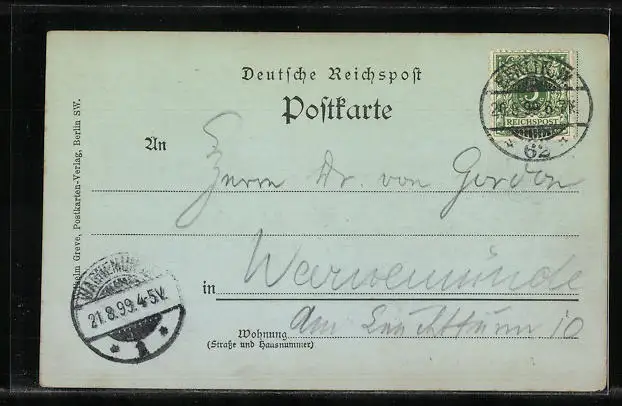 Deutsche Reichspost
Postkarte
BERLIN W.
99.6-7V.
62
5
REICHSPOST
An
Herrn Dr. von Gordon
in Warnemünde
Wohnung am Leuchtturm 10
(Straße und Hausnummer)
WARNEMÜNDE
21.8.99.4-5V.
1
Wilhelm Greve, Postkarten-Verlag, Berlin SW.